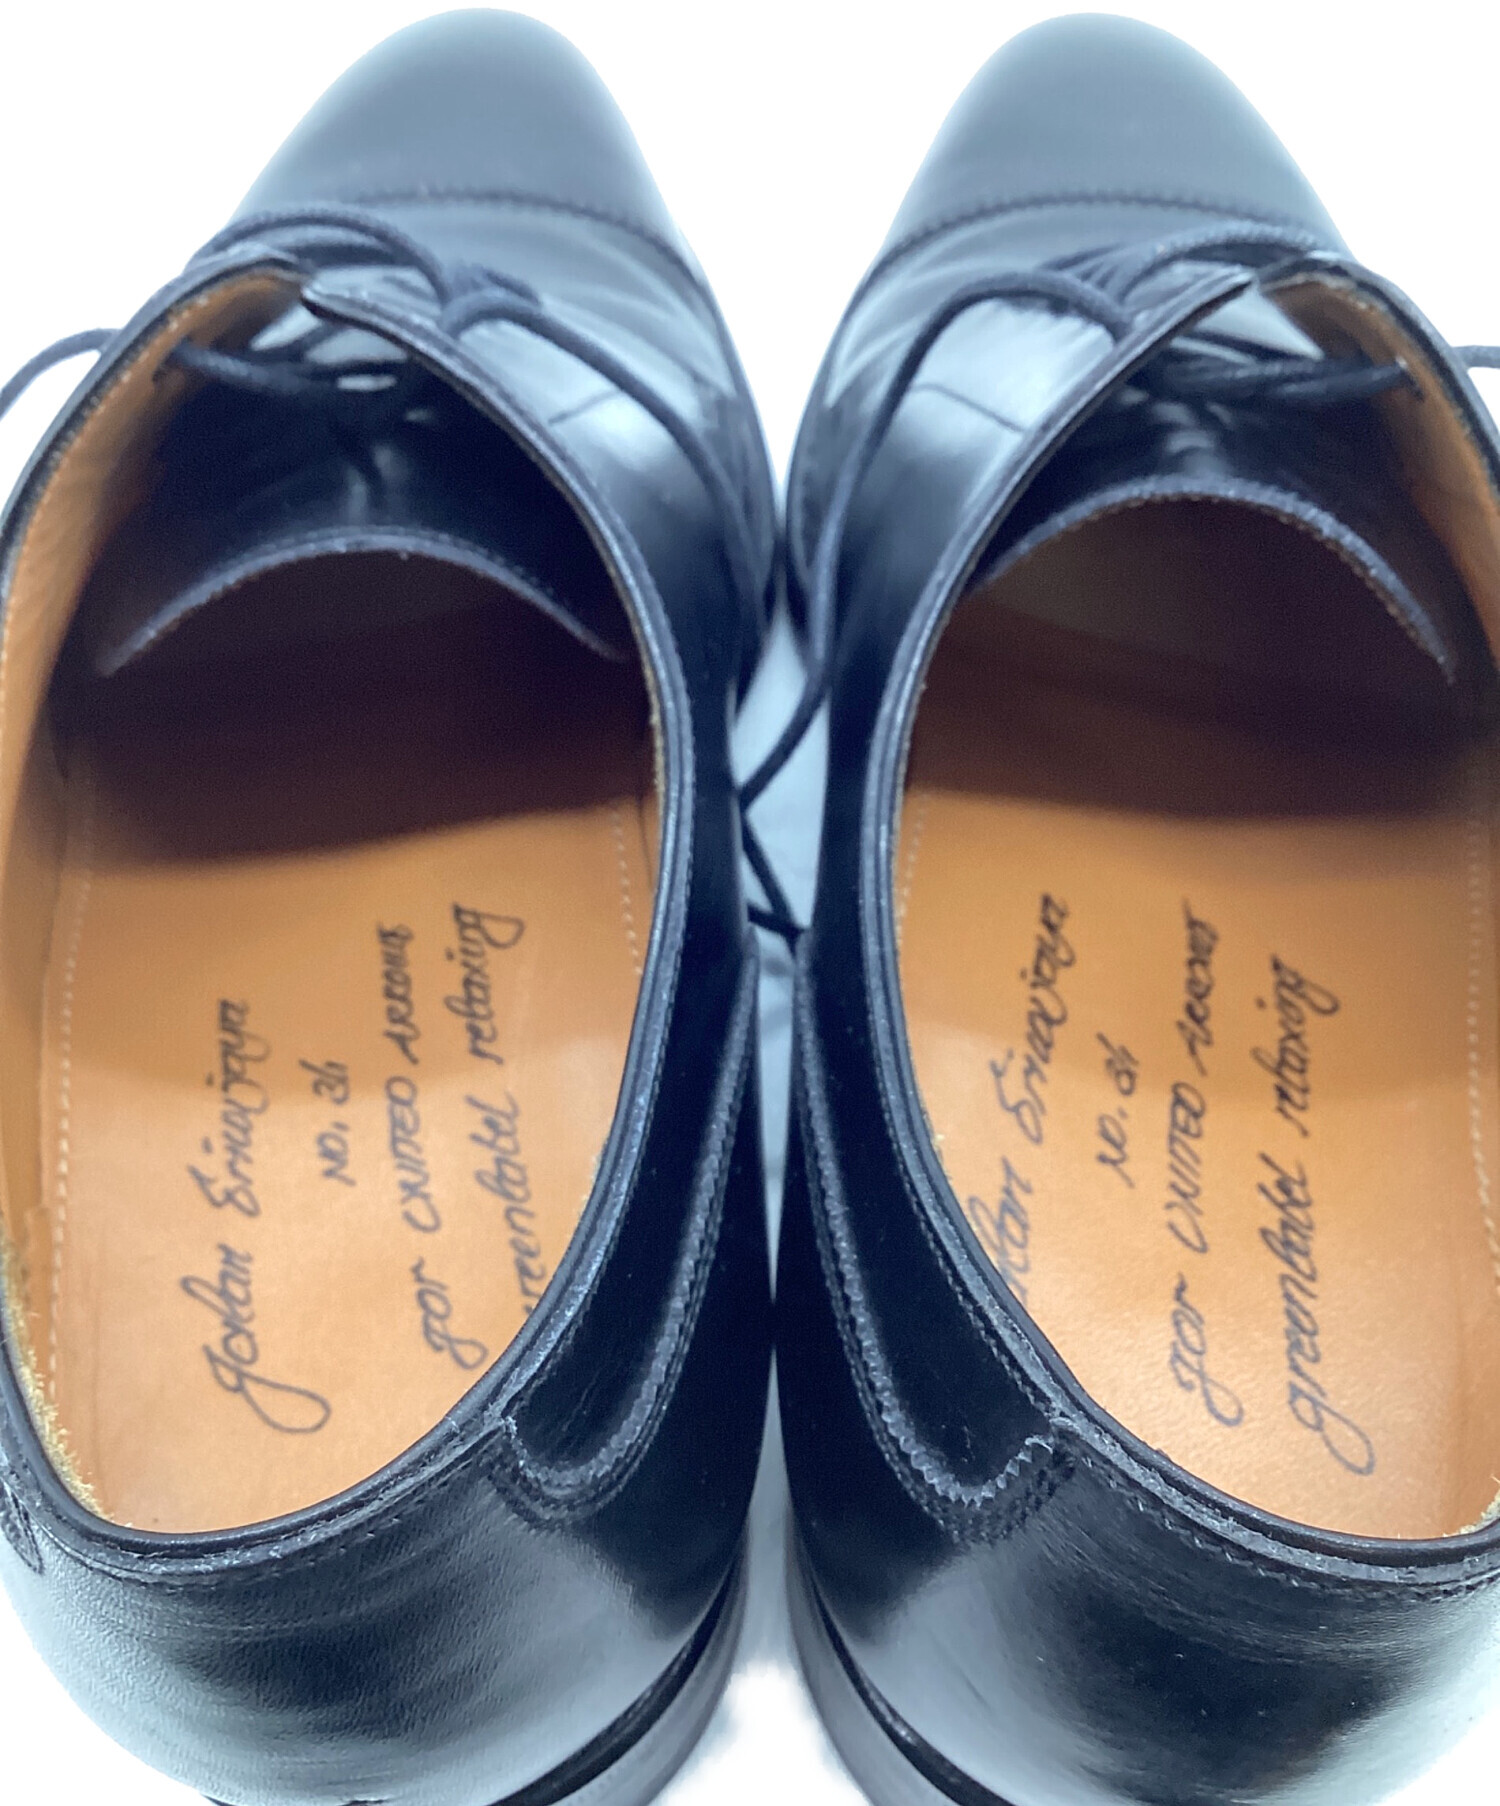 Jalan Sriwijaya
NO. 31
for UNITED ARROWS
greenlabel relaxing
Jalan Sriwijaya
NO. 31
for UNITED ARROWS
greenlabel relaxing